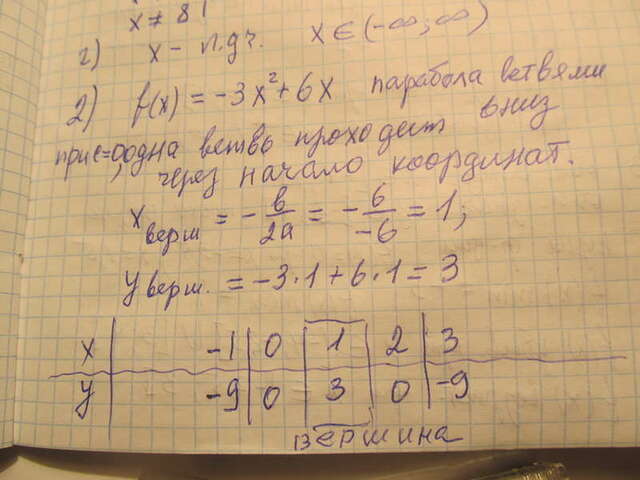 x ≠ 81
г) x – п.д.ч. x ∈ (-∞; ∞)
2) f(x) = -3x² + 6x парабола ветвями вниз
при c=0, одна ветвь проходит
через начало координат.
x верш = - в/2a = - 6/-6 = 1;
y верш. = -3·1 + 6·1 = 3
x | -1 | 0 | 1 | 2 | 3
y | -9 | 0 | 3 | 0 | -9
вершина